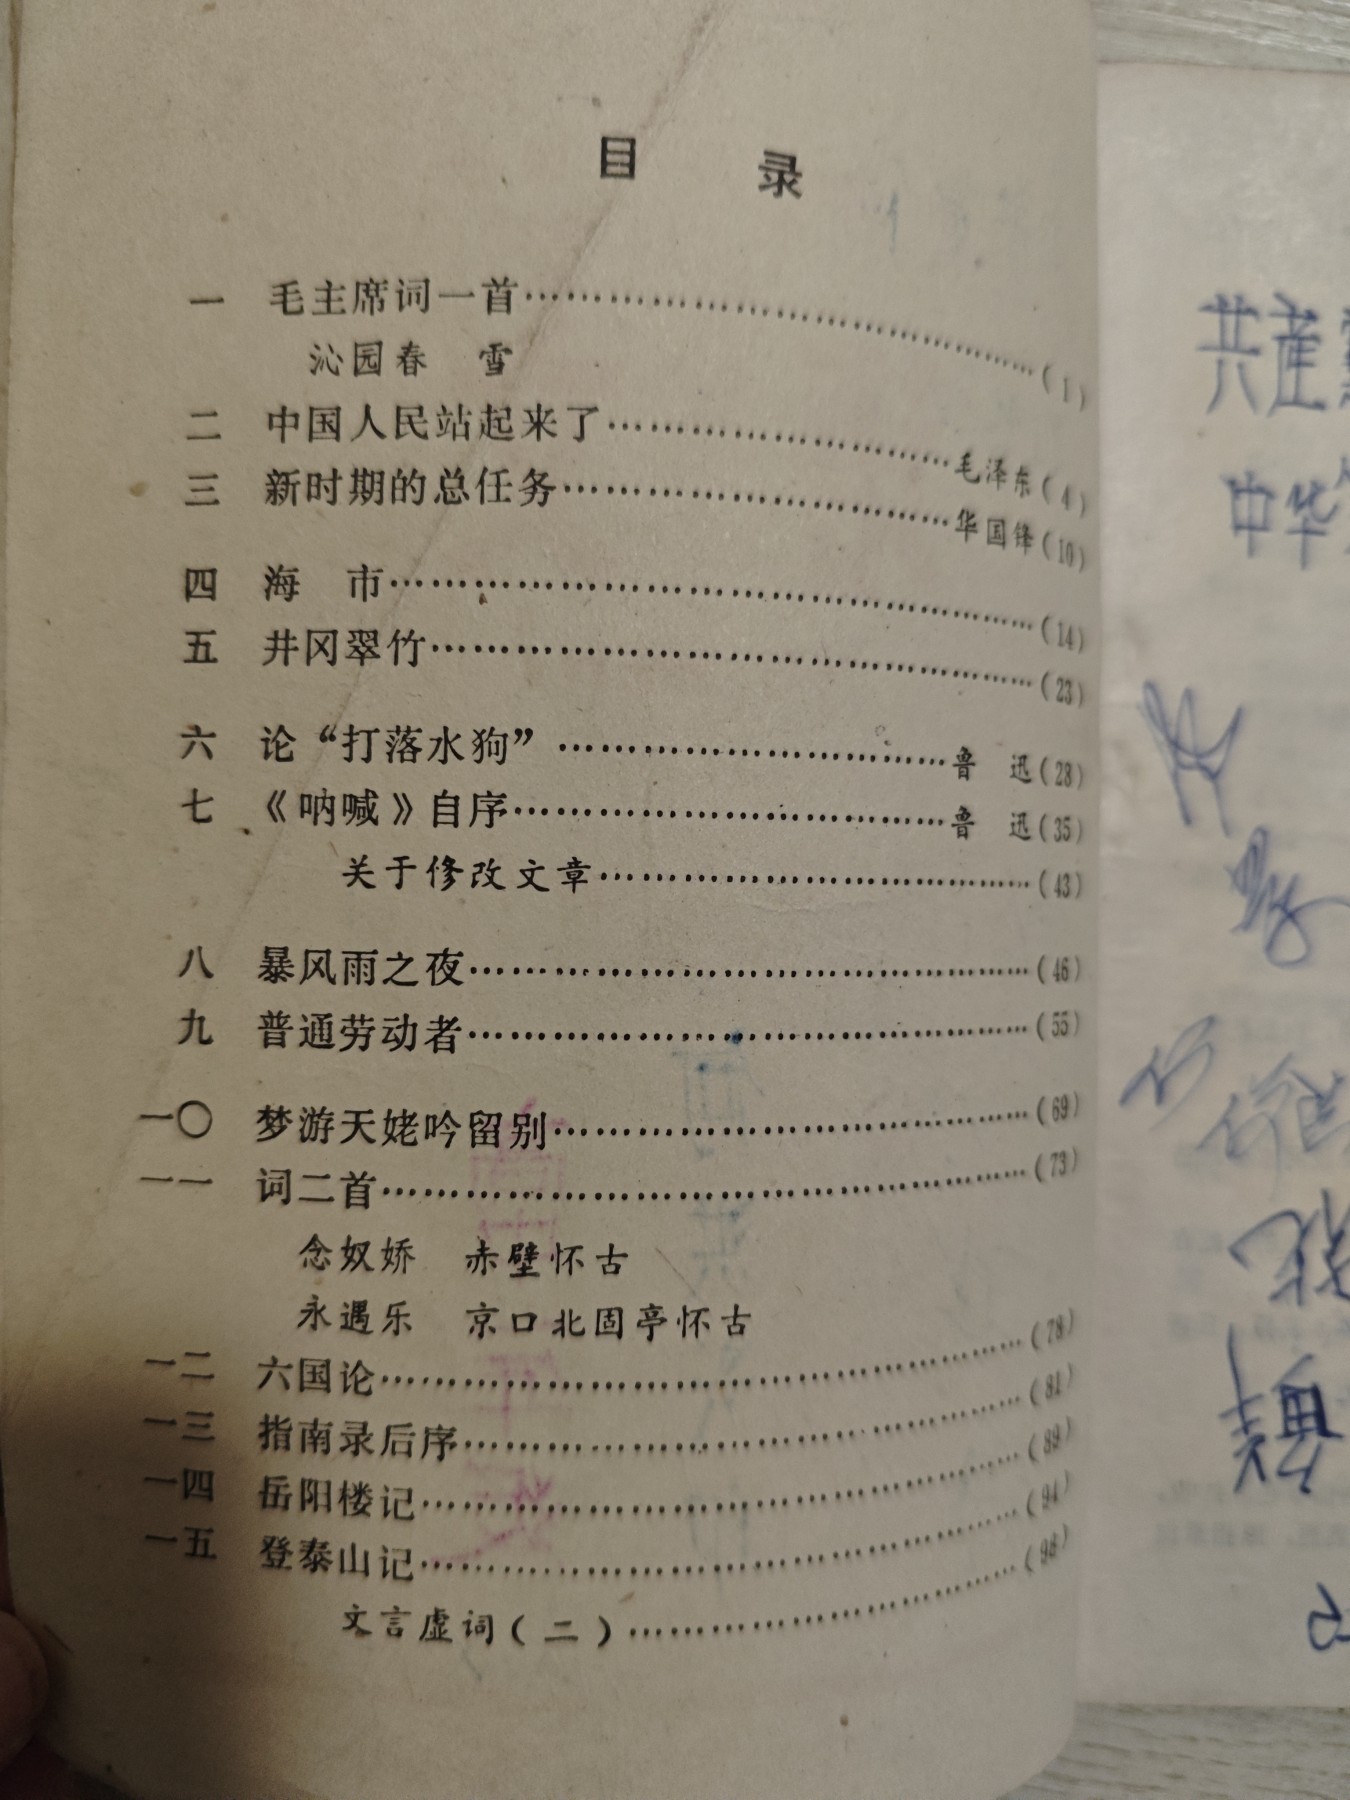 目 录
一 毛主席词一首……(1)
沁园春 雪
二 中国人民站起来了……毛泽东(4)
三 新时期的总任务……华国锋(10)
四 海 市……(14)
五 井冈翠竹……(23)
六 论“打落水狗”……鲁 迅(28)
七 《呐喊》自序……鲁 迅(35)
关于修改文章……(43)
八 暴风雨之夜……(46)
九 普通劳动者……(55)
一〇 梦游天姥吟留别……(69)
一一 词二首……(73)
念奴娇 赤壁怀古
永遇乐 京口北固亭怀古
一二 六国论……(78)
一三 指南录后序……(81)
一四 岳阳楼记……(89)
一五 登泰山记……(94)
文言虚词(二)……(98)
共産
中华